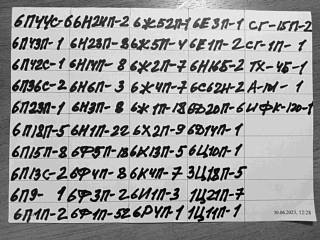 6П44С-6 6Н24П-2 6Ж52П-1 6Е3П-1 СГ-15П-2
6П43П-1 6Н23П-8 6Ж5П-4 6Е1П-2 СГ-1П-1
6П42С-1 6Н14П-8 6Ж2П-7 6Н16Б-2 ТХ-4Б-1
6П36С-2 6Н6П-3 6Ж4П-7 6С62Н-2 А-101-1
6П23П-1 6Н3П-8 6Ж1П-18 6Ф20П-6 ИФК-120-1
6П18П-5 6Н1П-22 6Х2П-9 6Ф14П-1
6П15П-8 6Ф5П-18 6К13П-5 6Ц10П-1
6П13С-2 6Ф4П-8 6К4П-7 3Ц18П-5
6П9-1 6Ф3П-2 6И1П-3 1Ц21П-7
6П1П-2 6Ф1П-52 6Р4П-1 1Ц11П-1
30.06.2023, 12:28